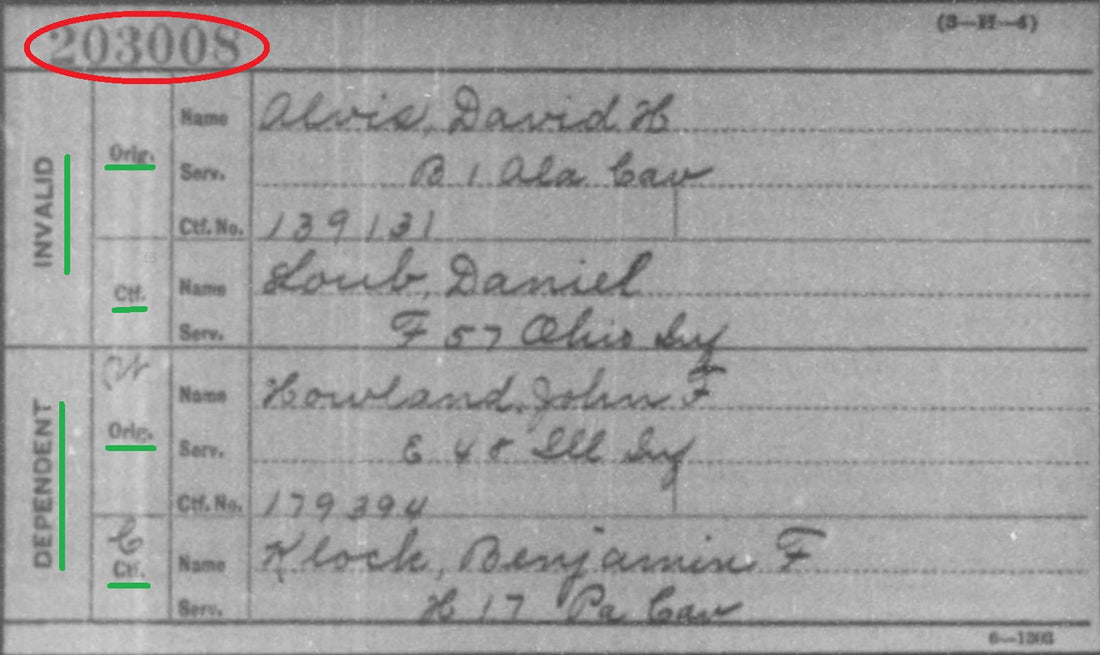 203008
(3—H—4)
INVALID
Orig.
Name Alvis, David H
Serv. B 1 Ala Cav
Ctf. No. 139131
Ctf.
Name Loub, Daniel
Serv. F 57 Ohio Inf
DEPENDENT
W
Orig.
Name Howland, John F
Serv. E 48 Ill Inf
Ctf. No. 179394
C
Ctf.
Name Klock, Benjamin F
Serv. H 17 Pa Cav
6—1303